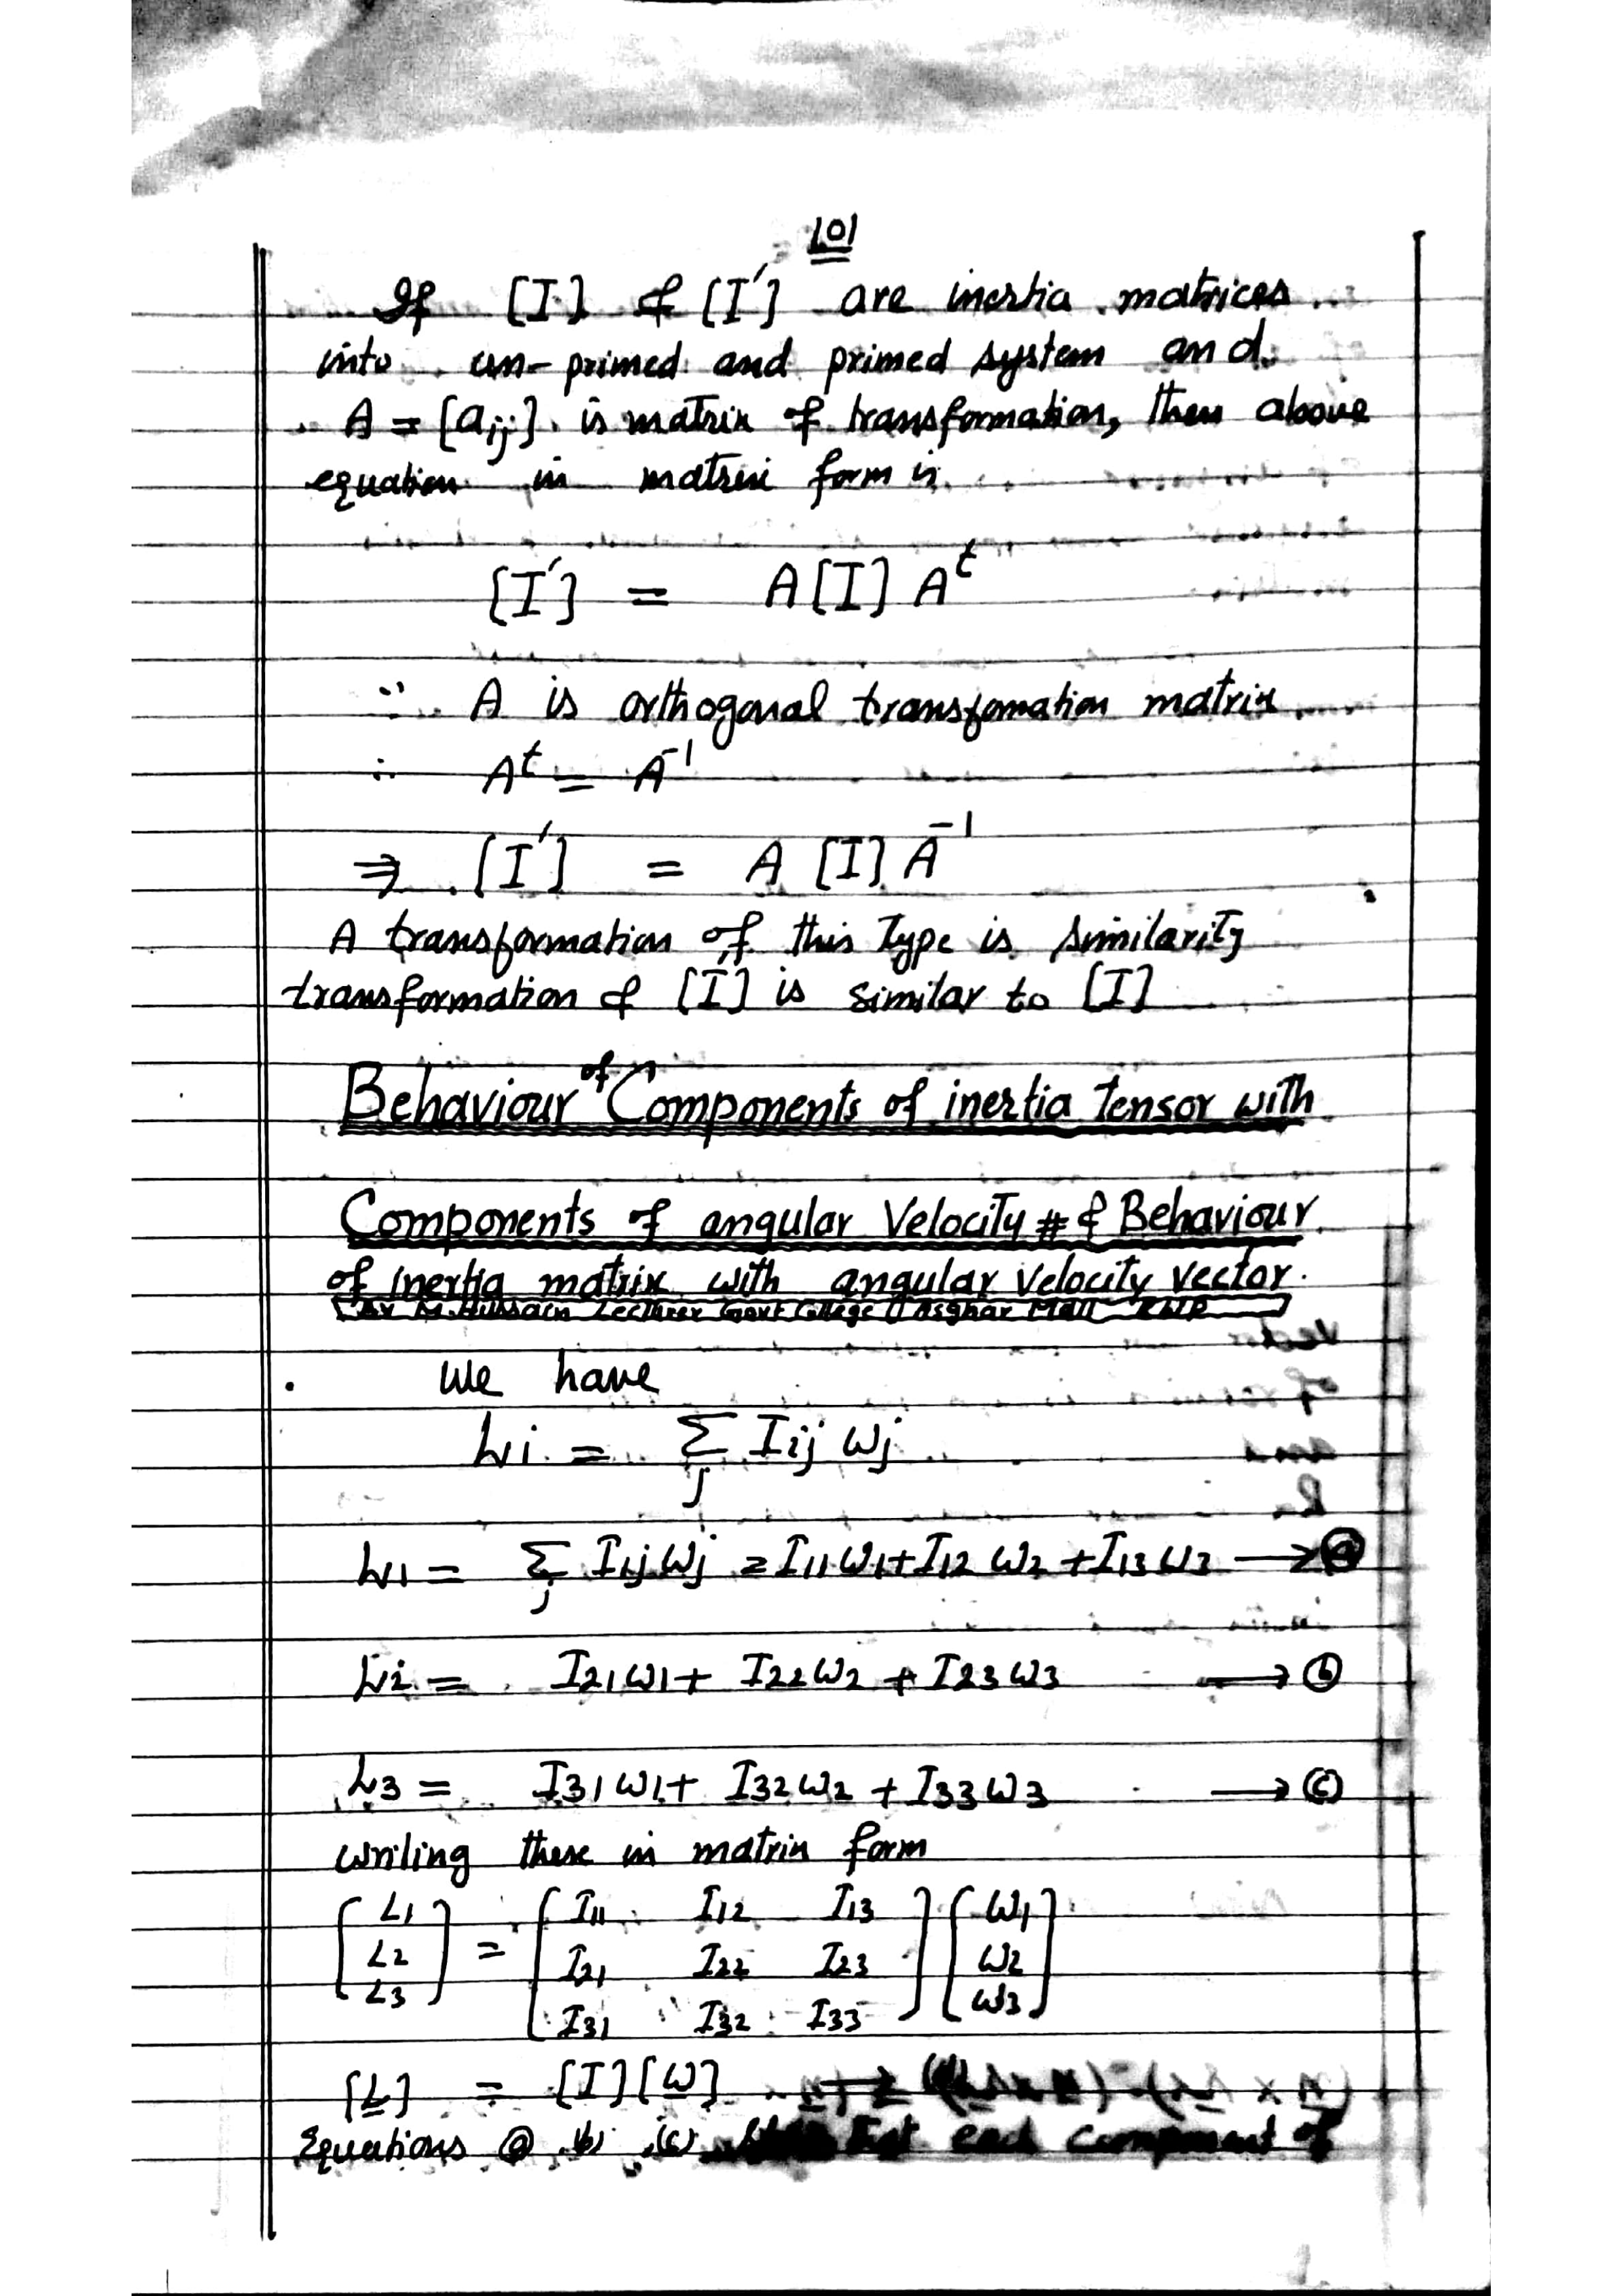 101
If [I] & [I'] are inertia matrices
into un-primed and primed system and
A = [aij] is matrix of transformation, then above
equation in matrix form is
[I'] = A[I] Aᵗ
∵ A is orthogonal transfomation matrix
∴ Aᵗ = A⁻¹
⇒ [I'] = A [I] A⁻¹
A transformation of this Type is similarity
transformation & [I'] is similar to [I]
Behaviour of Components of inertia tensor with
Components of angular Velocity # & Behaviour
of inertia matrix with angular velocity vector.
By M. Hussain Lecturer Govt College Asghar Mall RWP
We have
Li = Σj Iij ωj
L1 = Σj I1j ωj = I11 ω1 + I12 ω2 + I13 ω3 → (a)
L2 = I21 ω1 + I22 ω2 + I23 ω3 → (b)
L3 = I31 ω1 + I32 ω2 + I33 ω3 → (c)
writing these in matrix form
[L1] = [I11 I12 I13] [ω1]
[L2] [I21 I22 I23] [ω2]
[L3] [I31 I32 I33] [ω3]
[L] = [I] [ω]
Equations (a) (b) (c) each component of